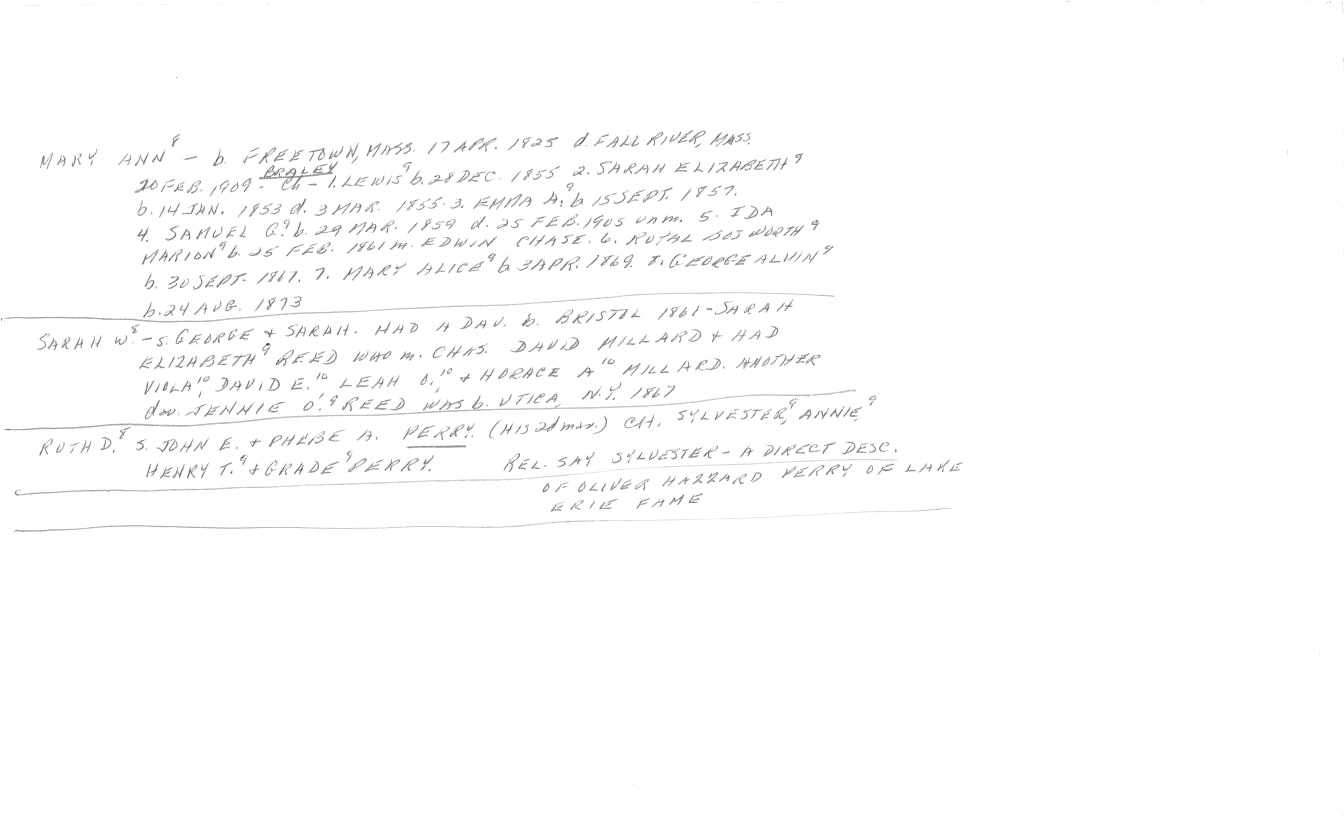 MARY ANN⁸ – b. FREETOWN, MASS. 17 APR. 1825 d. FALL RIVER, MASS.
BRALEY
20 FEB. 1909 – Ch – 1. LEWIS⁹ b. 28 DEC. 1855 2. SARAH ELIZABETH⁹
b. 14 JAN. 1853 d. 3 MAR. 1855. 3. EMMA A.⁹ b 15 SEPT. 1857.
4. SAMUEL G.⁹ b. 29 MAR. 1859 d. 25 FEB. 1905 unm. 5. IDA
MARION⁹ b. 25 FEB. 1861 m. EDWIN CHASE. 6. ROYAL BOSWORTH⁹
b. 30 SEPT. 1867. 7. MARY ALICE⁹ b 3 APR. 1869. 8. GEORGE ALVIN⁹
b. 24 AUG. 1873
SARAH W.⁸ – s. GEORGE + SARAH. HAD A DAU. b. BRISTOL 1861 – SARAH
ELIZABETH⁹ REED WHO m. CHAS. DAVID MILLARD + HAD
VIOLA,¹⁰ DAVID E.¹⁰ LEAH O.,¹⁰ + HORACE A¹⁰ MILLARD. ANOTHER
dau. JENNIE O.⁹ REED WAS b. UTICA, N.Y. 1867
RUTH D.⁸ S. JOHN E. + PHEBE A. PERRY. (HIS 2d mar.) CH. SYLVESTER,⁹ ANNIE,⁹
HENRY T.⁹ + GRADE⁹ PERRY. REL. SAY SYLVESTER – A DIRECT DESC.
OF OLIVER HAZZARD PERRY OF LAKE
ERIE FAME